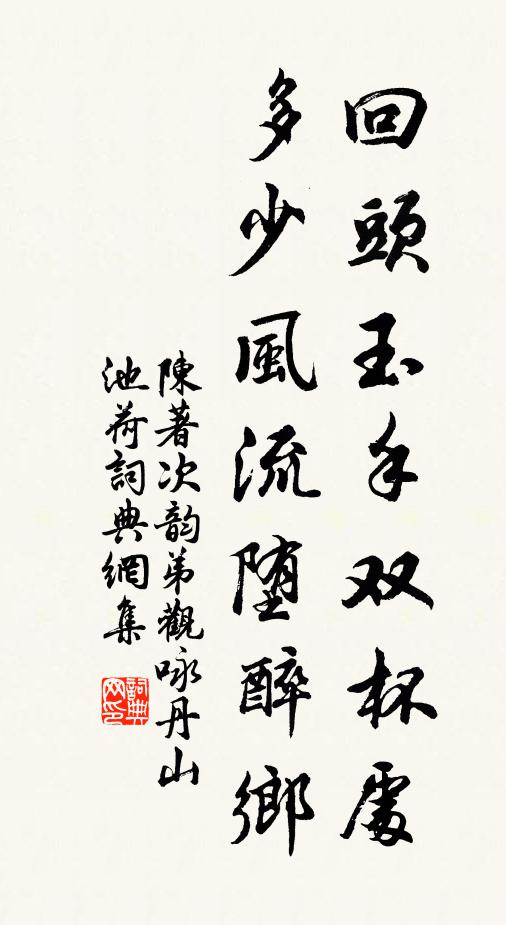 回頭玉手双杯處
多少風流堕醉鄉
陳著次韵弟觀咏丹山
池荷詞典網集
詞典网印